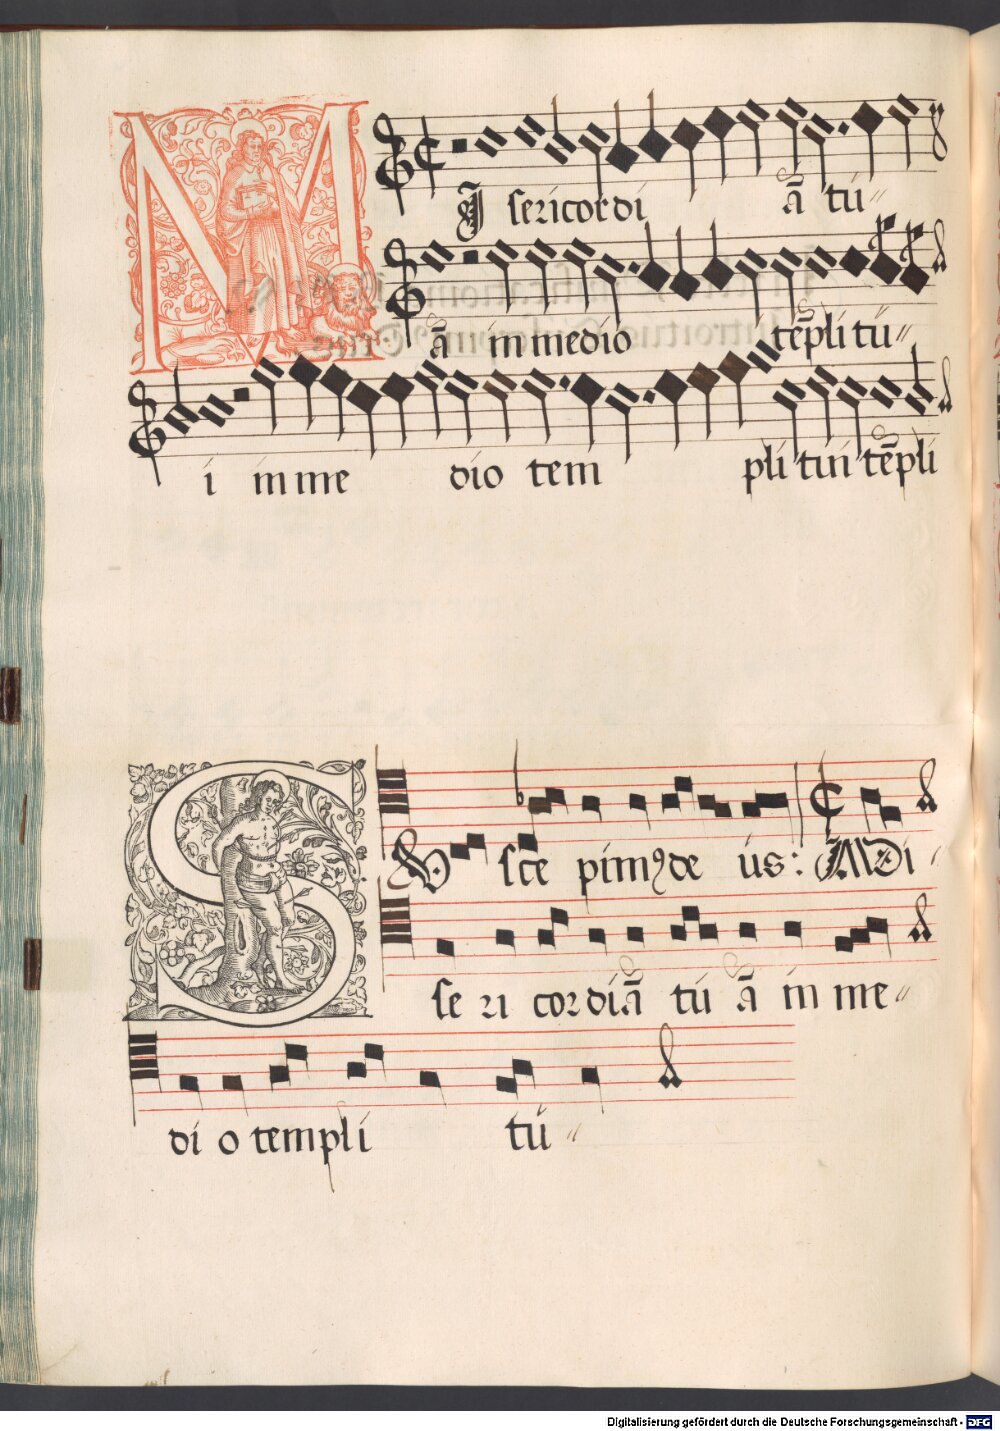 MJ sericordi ā tú
ā in medio tēpli tú
i in me dio tem pli tui tēpli
SVsce pimꝰ de us: Mi
se ri cor diā tú ā in me
di o templi tú
Digitalisierung gefördert durch die Deutsche Forschungsgemeinschaft - DFG